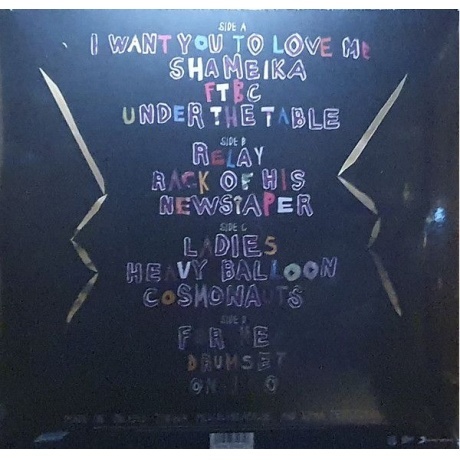 SIDE A
I WANT YOU TO LOVE ME
SHAMEIKA
FTBC
UNDER THE TABLE
SIDE B
RELAY
RACK OF HIS
NEWSPAPER
SIDE C
LADIES
HEAVY BALLOON
COSMONAUTS
SIDE D
FOR HE
DRUMSET
ON I O